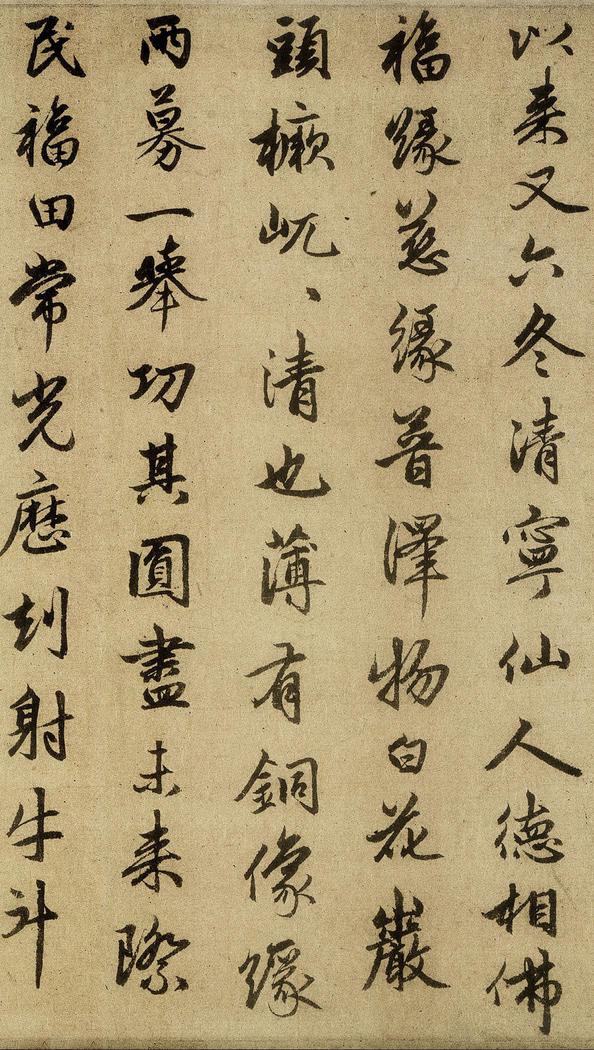 以来又六冬清寧仙人德相佛
福緣慈緣普澤物白花巖
頭橛屼、清也薄有銅像緣
兩募一舉功其圓盡未来際
民福田常光歷刦射牛斗